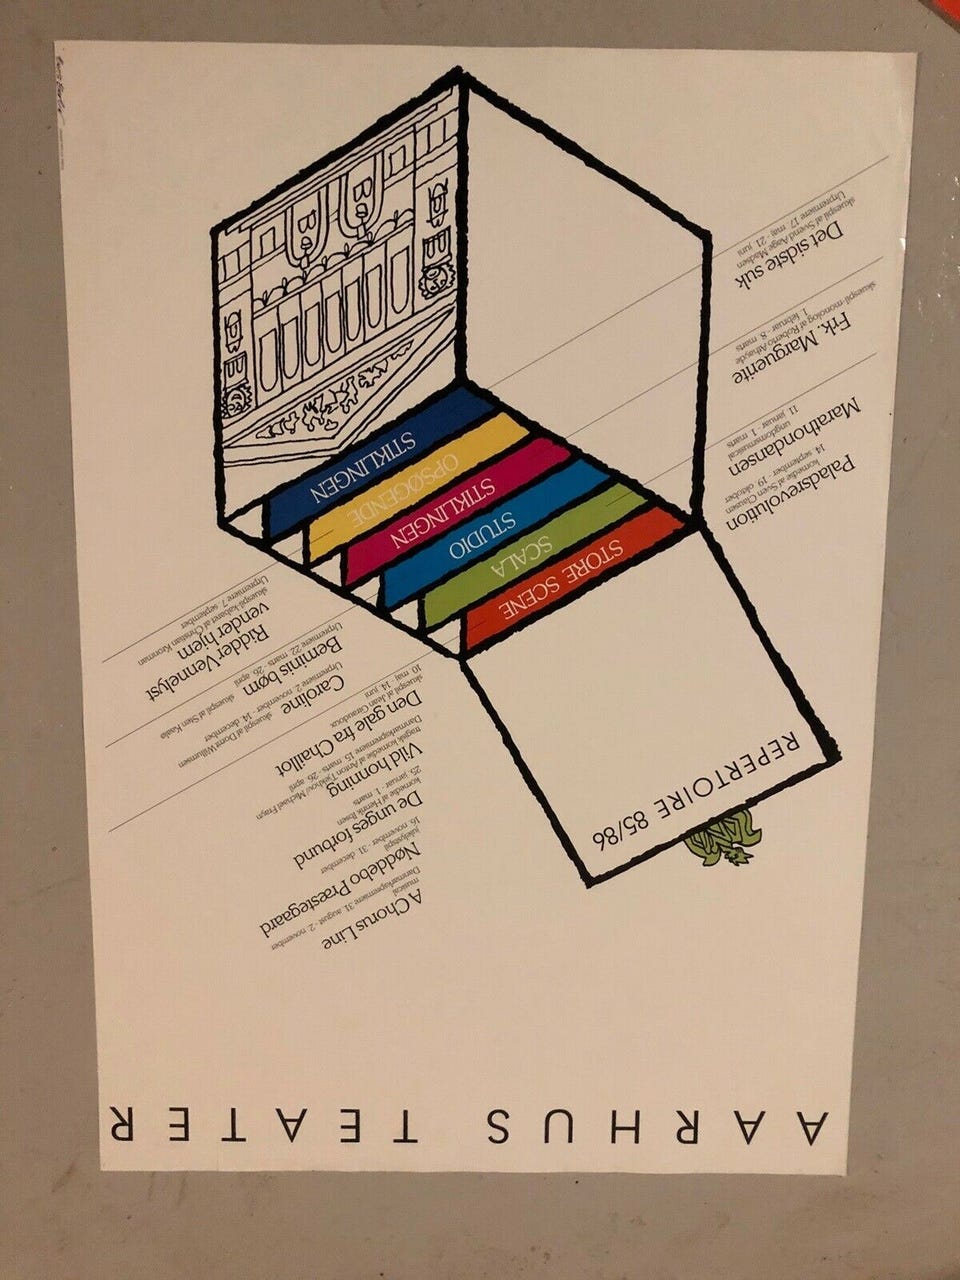 AARHUS TEATER
A Chorus Line
musical
Danmarkspremiere 31. august - 2. november
Nøddebo Præstegaard
julelystspil
16. november - 31. december
De unges forbund
komedie af Henrik Ibsen
25. januar - 1. marts
Vild honning
tragisk komedie af Anton Tjekhov/Michael Frayn
Danmarkspremiere 15. marts - 26. april
Den gale fra Chaillot
skuespil af Jean Giraudoux
10. maj - 14. juni
Caroline
skuespil af Dorrit Willumsen
Urpremiere 2. november - 14. december
Beminis børn
skuespil af Sten Kaalø
Urpremiere 22. marts - 26. april
Ridder Vennelyst
vender hjem
skuespil/kabaret af Christian Kronman
Urpremiere 7. september
REPERTOIRE 85/86
STORE SCENE
SCALA
STUDIO
STIKLINGEN
OPSØGENDE
STIKLINGEN
Paladsrevolution
komedie af Sven Clausen
14. september - 19. oktober
Marathondansen
ungdomsmusical
11. januar - 1. marts
Frk. Marguerite
skuespil-monolog af Roberto Athayde
1. februar - 8. marts
Det sidste suk
skuespil af Svend Aage Madsen
Urpremiere 17. maj - 21. juni